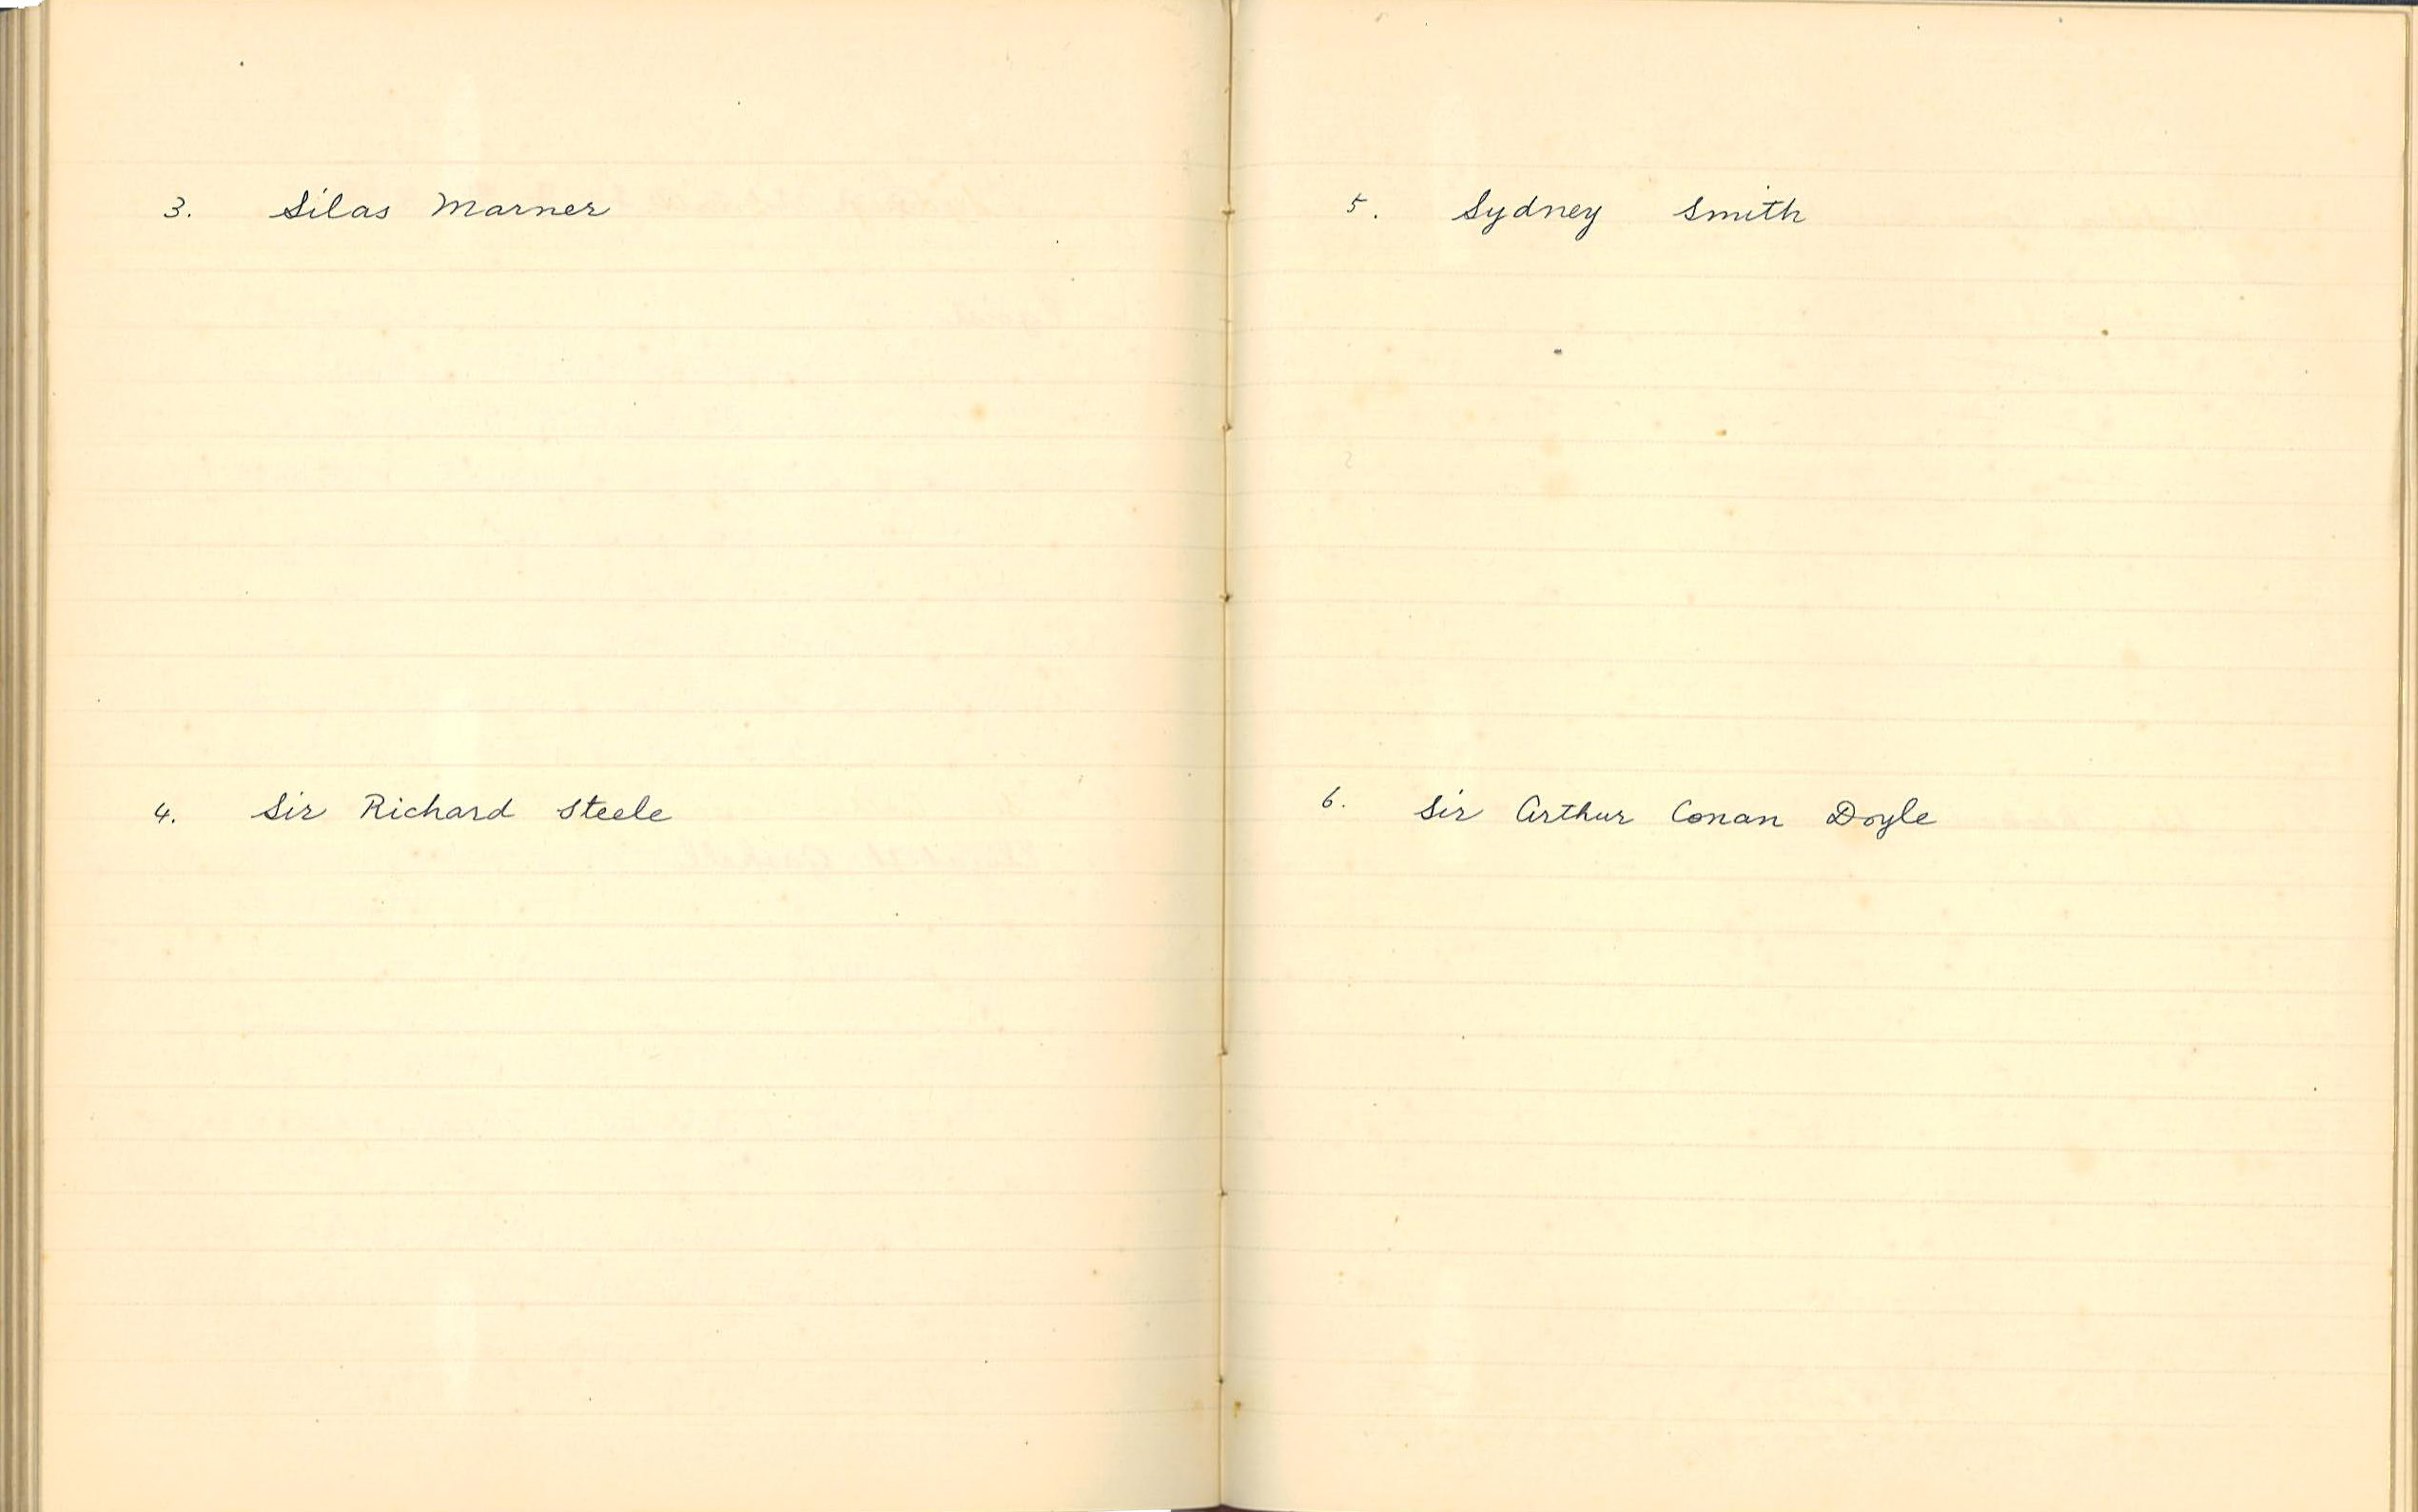 3. Silas Marner
4. Sir Richard Steele
5. Sydney Smith
6. Sir Arthur Conan Doyle